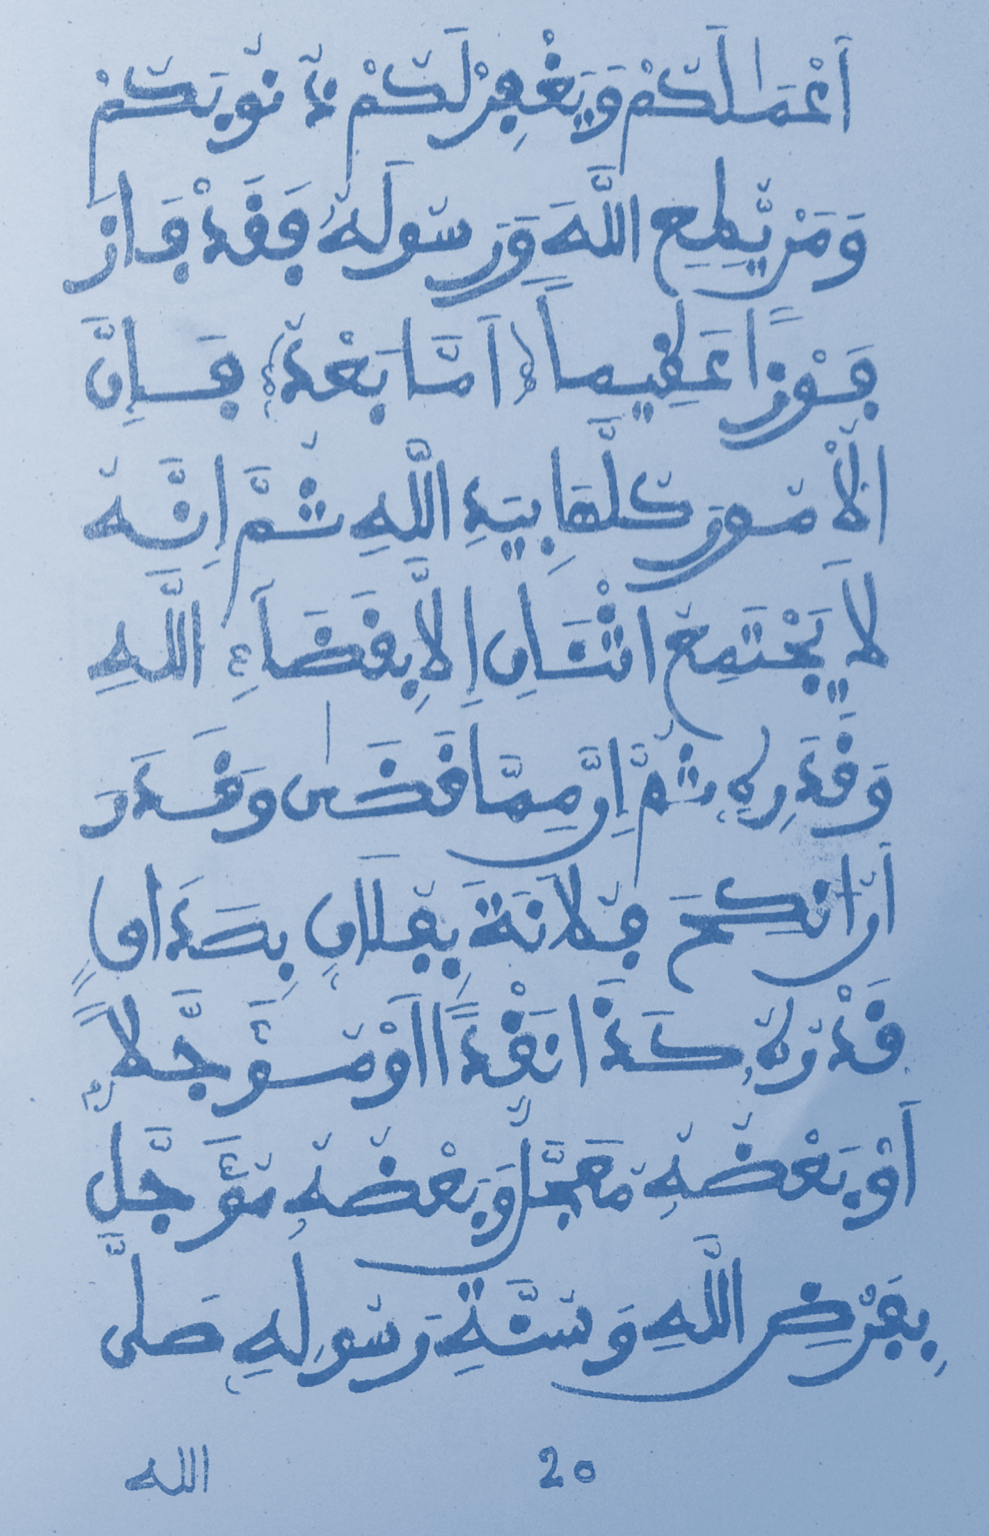 أَعْمَٰلَكُمْ وَيَغْفِرْ لَكُمْ ذُنُوبَكُمْ
وَمَنْ يُّطِعِ اللَّهَ وَرَسُولَهُ فَقَدْ فَازَ
فَوْزًا عَظِيماً (و) أَمَّا بَعْدُ فَإِنَّ
الْأُمُورَ كُلَّهَا بِيَدِ اللَّهِ ثُمَّ إِنَّهُ
لَا يَجْتَمِعُ اثْنَانِ إِلَّا بِقَضَآءِ اللَّهِ
وَقَدَرِهِ ثُمَّ إِنَّ مِمَّا قَضَىٰ وَقَدَرَ
أَنْ أَنْكَحَ فُلَانَةَ بِفُلَانٍ بِصَدَاقٍ
قَدْرُهُ كَذَا نَقْدًا أَوْ مُؤَجَّلًا
أَوْ بَعْضُهُ مُعَجَّلٌ وَبَعْضُهُ مُؤَجَّلٌ
بِفَرْضِ اللَّهِ وَسُنَّةِ رَسُولِهِ صَلَّى
20
الله